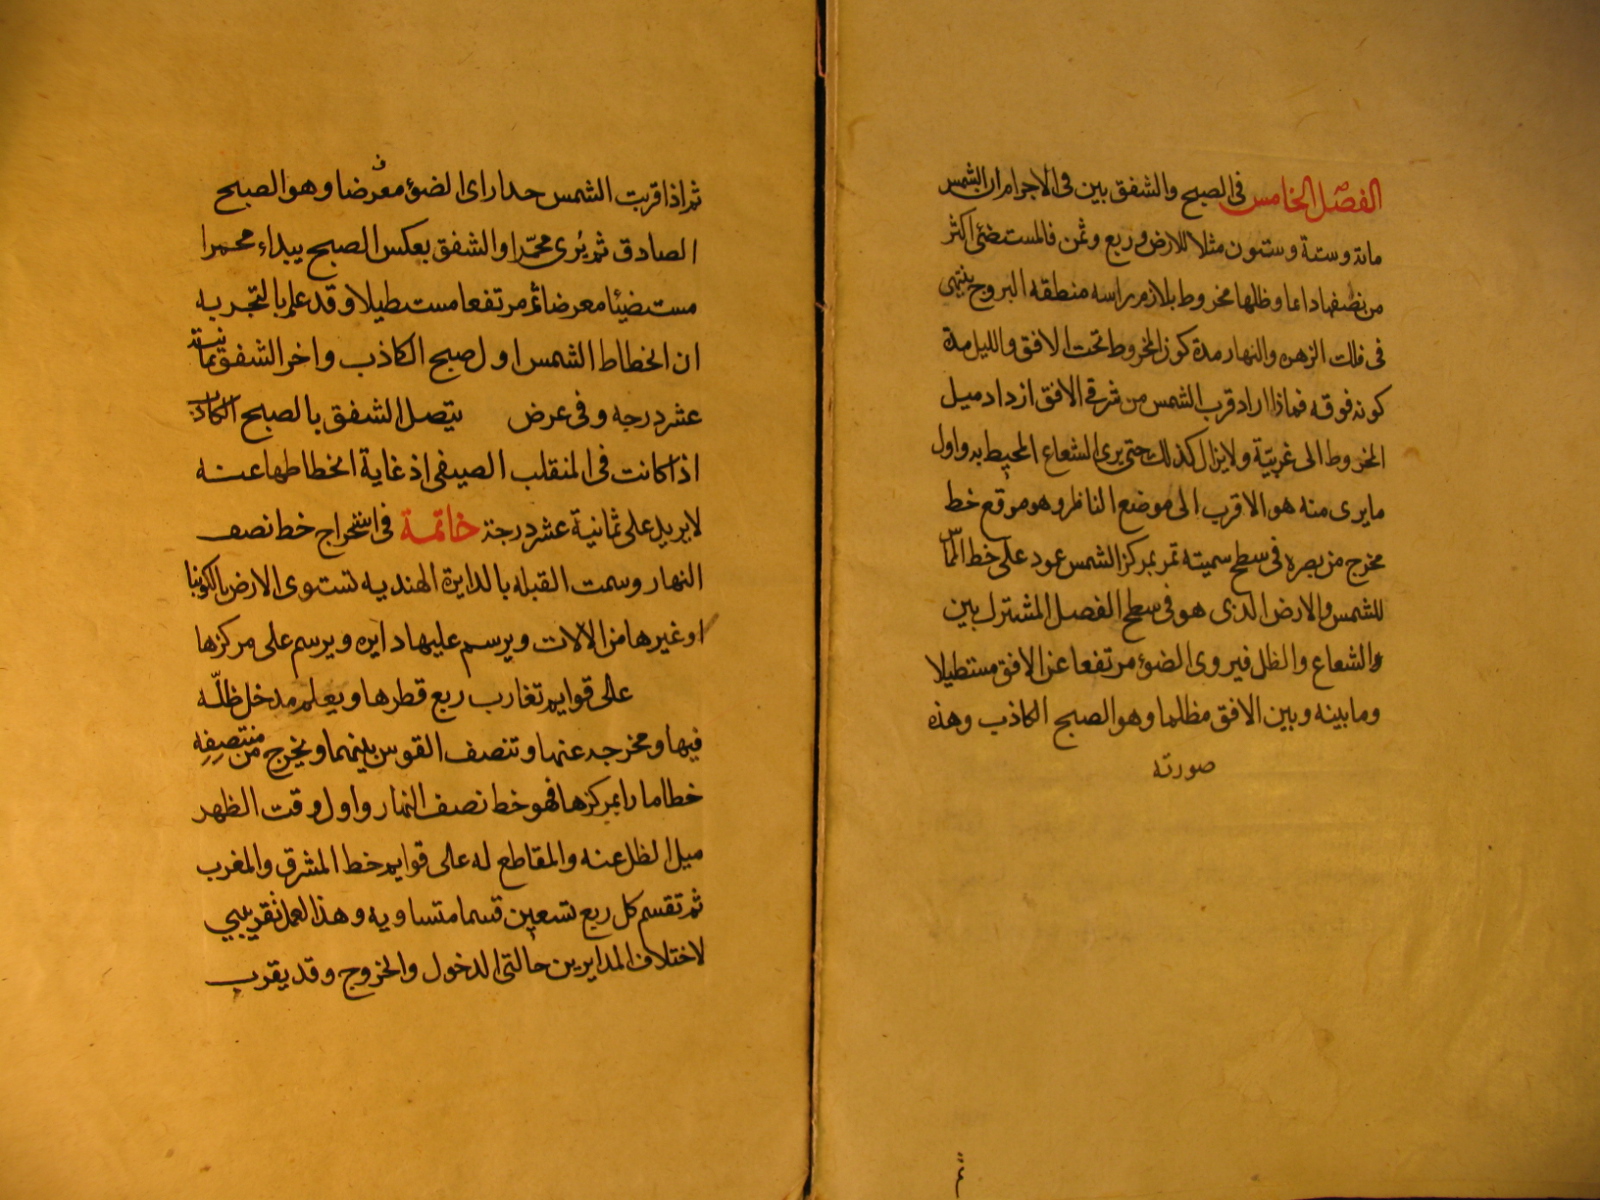 الفصل الخامس فى الصبح والشفق بين فى الاجرام ان الشمس
مائة وستة وستون مثلا للارض وربع وثمن فالمستضئ اكثر
من نصفها دائما وظلها مخروط يلازم راسه منطقة البروج ينتهى
فى فلك الزهره والنهار مدة كون المخروط تحت الافق والليل مدة
كونه فوقه فاذا ازداد قرب الشمس من شرقى الافق ازداد ميل
المخروط الى غربيّة ولا يزال كذلك حتى يرى الشعاع المحيط به واول
ما يرى منه هو الاقرب الى موضع الناظر وهو موقع خط
مخرج من بصره فى سطح سميته تمر بمركز الشمس عمود على خط المماسّ
للشمس والارض الذى هو فى سطح الفصل المشترك بين
والشعاع والظل فيروى الضوء مرتفعا عن الافق مستطيلا
وما بينه وبين الافق مظلما وهو الصبح الكاذب وهذه
صورته
ثم اذا قربت الشمس جدا راى الضوء معرضا وهو الصبح
الصادق ثم يُرى محمّرا والشفق بعكس الصبح يبداء محمرا
مستضيئا معرضا ثم مرتفعا مستطيلا وقد علم بالتجربه
ان انحطاط الشمس اول صبح الكاذب واخر الشفق ثمانية
عشر درجه وفى عرض يتصل الشفق بالصبح الكاذب
اذا كانت فى المنقلب الصيفى اذ غاية انحطاطها عنه
لا يزيد على ثمانية عشر درجة خاتمة فى استخراج خط نصف
النهار وسمت القبله بالدايرة الهنديه تستوى الارض بالكونيا
او غيرها من الالات ويرسم عليها دايره ويرسم على مركزها
على قوايم تقارب ربع قطرها ويعلم مدخل ظلّه
فيها ومخرجه عنها وتنصف القوس بينهما ويخرج من منتصفه
خطا مارا بمركزها فهو خط نصف النهار واول وقت الظهر
ميل الظل عنه والمقاطع له على قوايم خط المشرق والمغرب
ثم تقسم كل ربع تسعين قسما متساويه وهذا العمل تقريبي
لاختلاف المدايرين حالتى الدخول والخروج وقد يقرب